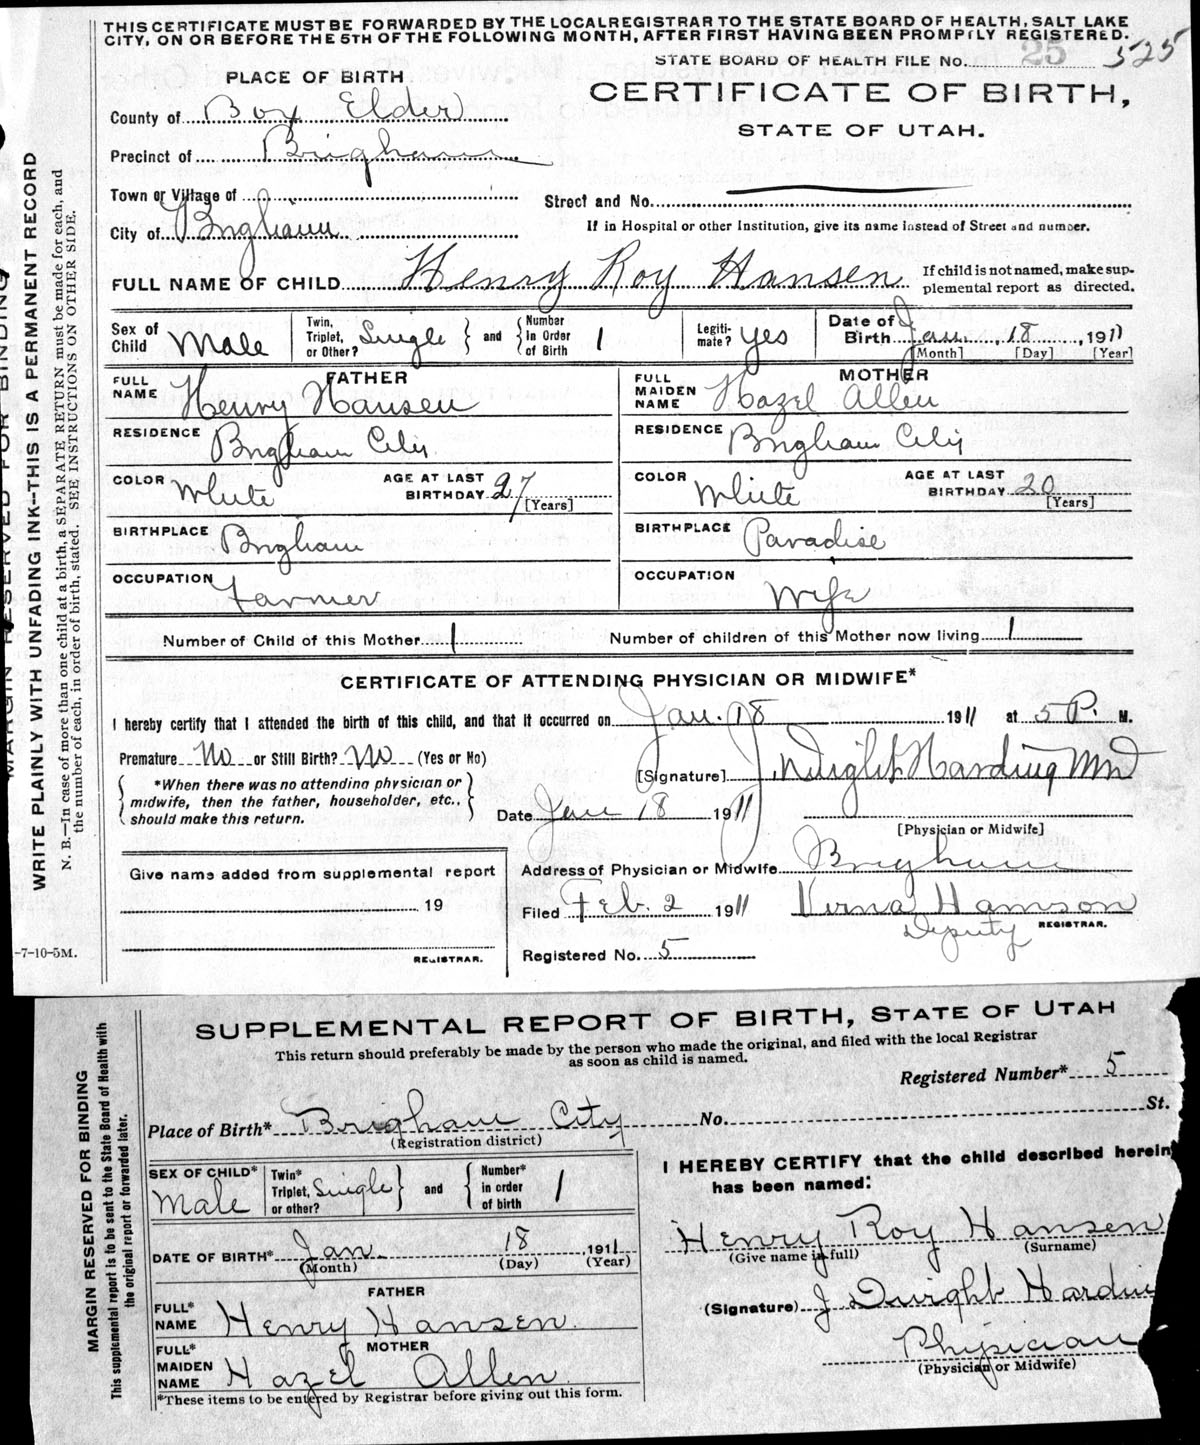 THIS CERTIFICATE MUST BE FORWARDED BY THE LOCAL REGISTRAR TO THE STATE BOARD OF HEALTH, SALT LAKE
CITY, ON OR BEFORE THE 5TH OF THE FOLLOWING MONTH, AFTER FIRST HAVING BEEN PROMPTLY REGISTERED.
STATE BOARD OF HEALTH FILE No. 25 525
PLACE OF BIRTH
CERTIFICATE OF BIRTH,
STATE OF UTAH.
County of Box Elder
Precinct of Brigham
Town or Village of
Street and No.
City of Brigham
If in Hospital or other Institution, give its name instead of Street and number.
FULL NAME OF CHILD Henry Roy Hansen
If child is not named, make supplemental report as directed.
Sex of Child Male
Twin, Triplet, or Other? Single and Number in Order of Birth 1
Legitimate? Yes
Date of Birth Jan 18, 1911
[Month] [Day] [Year]
FATHER
FULL NAME Henry Hansen
RESIDENCE Brigham City
COLOR White AGE AT LAST BIRTHDAY 27 [Years]
BIRTHPLACE Brigham
OCCUPATION Farmer
MOTHER
FULL MAIDEN NAME Hazel Allen
RESIDENCE Brigham City
COLOR White AGE AT LAST BIRTHDAY 20 [Years]
BIRTHPLACE Paradise
OCCUPATION Wife
Number of Child of this Mother 1 Number of children of this Mother now living 1
CERTIFICATE OF ATTENDING PHYSICIAN OR MIDWIFE*
I hereby certify that I attended the birth of this child, and that it occurred on Jan. 18 1911 at 5 P. M.
Premature No or Still Birth? No (Yes or No)
*When there was no attending physician or
midwife, then the father, householder, etc.,
should make this return.
[Signature] J. Dwight Harding MD
Date Jan 18 1911
[Physician or Midwife]
Address of Physician or Midwife Brigham
Give name added from supplemental report
19
REGISTRAR.
Filed Feb. 2 1911 Verna Hamson
Deputy REGISTRAR.
Registered No. 5
-7-10-5M.
MARGIN RESERVED FOR BINDING
WRITE PLAINLY WITH UNFADING INK--THIS IS A PERMANENT RECORD
N. B.—In case of more than one child at a birth, a SEPARATE RETURN must be made for each, and
the number of each, in order of birth, stated. SEE INSTRUCTIONS ON OTHER SIDE.
SUPPLEMENTAL REPORT OF BIRTH, STATE OF UTAH
This return should preferably be made by the person who made the original, and filed with the local Registrar
as soon as child is named.
Registered Number* 5
Place of Birth* Brigham City No. St.
(Registration district)
SEX OF CHILD* Male
Twin* Triplet, or other? Single and Number* in order of birth 1
DATE OF BIRTH* Jan. 18, 1911
(Month) (Day) (Year)
FATHER
FULL* NAME Henry Hansen.
MOTHER
FULL* MAIDEN NAME Hazel Allen
*These items to be entered by Registrar before giving out this form.
I HEREBY CERTIFY that the child described herein
has been named:
Henry Roy Hansen
(Give name in full) (Surname)
(Signature) J Dwight Hardin
Physician
(Physician or Midwife)
MARGIN RESERVED FOR BINDING
This supplemental report is to be sent to the State Board of Health with
the original report or forwarded later.